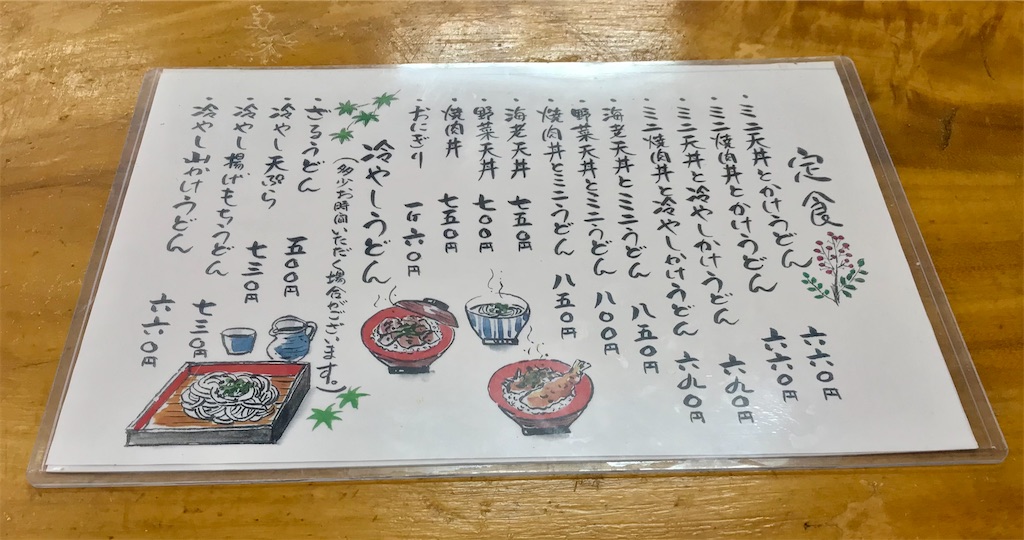 定食
・ミニ天丼とかけうどん 六六〇円
・ミニ焼肉丼とかけうどん 六六〇円
・ミニ天丼と冷やしかけうどん 六九〇円
・ミニ焼肉丼と冷やしかけうどん 六九〇円
・海老天丼とミニうどん 八五〇円
・野菜天丼とミニうどん 八〇〇円
・焼肉丼とミニうどん 八五〇円
・海老天丼 七五〇円
・野菜天丼 七〇〇円
・焼肉丼 七五〇円
・おにぎり 一ケ六〇円
冷やしうどん
(多少お時間いただく場合がございます。)
・ざるうどん 五〇〇円
・冷やし天ぷら 七三〇円
・冷やし揚げもちうどん 七三〇円
・冷やし山かけうどん 六六〇円